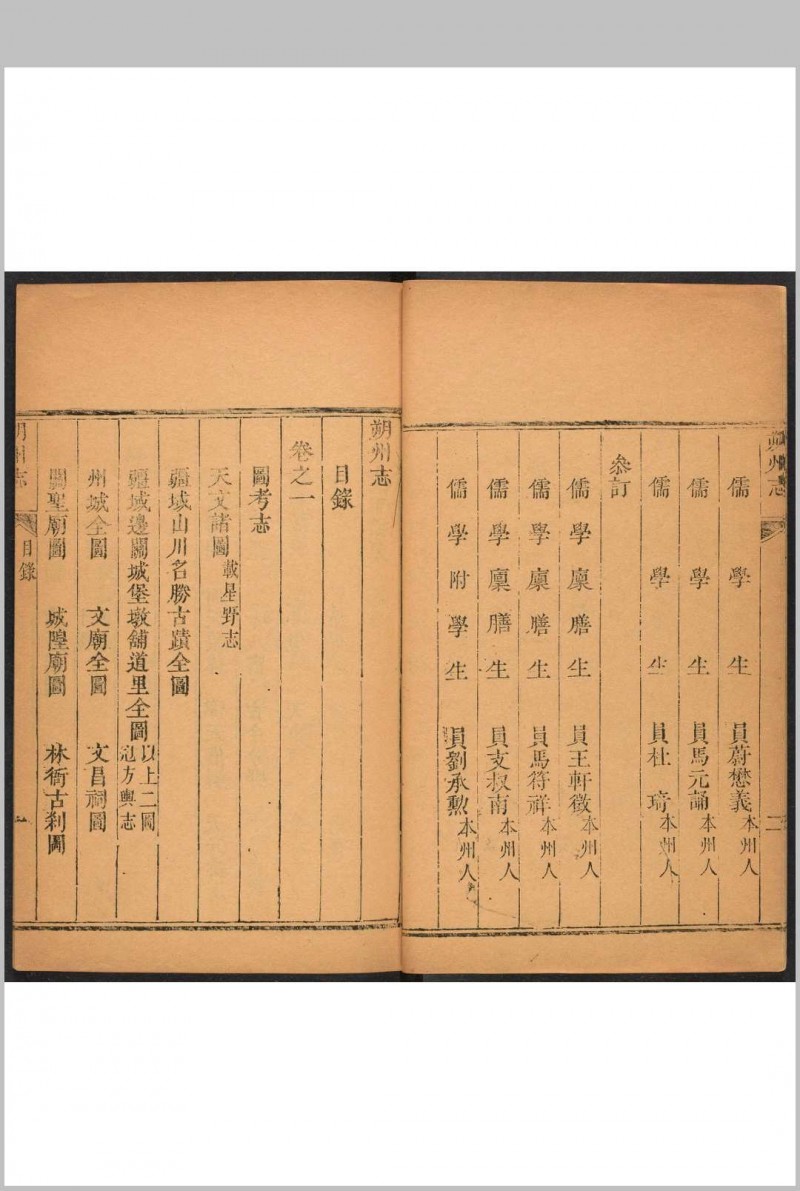 朔州志
二
儒學生員蔚懋義本州人
儒學生員馬元誦本州人
儒學生員杜琦本州人
參訂
儒學廩膳生員王軒徵本州人
儒學廩膳生員馬符祥本州人
儒學廩膳生員支叔南本州人
儒學附學生員劉承勲本州人
朔州志
目錄
卷之一
圖考志
天文諸圖載星野志
疆域山川名勝古蹟全圖
疆域邊關城堡墩舖道里全圖以上二圖冠方輿志
州城全圖 文廟全圖 文昌祠圖
關聖廟圖 城隍廟圖 林衙古剎圖
朔州志 目錄 一